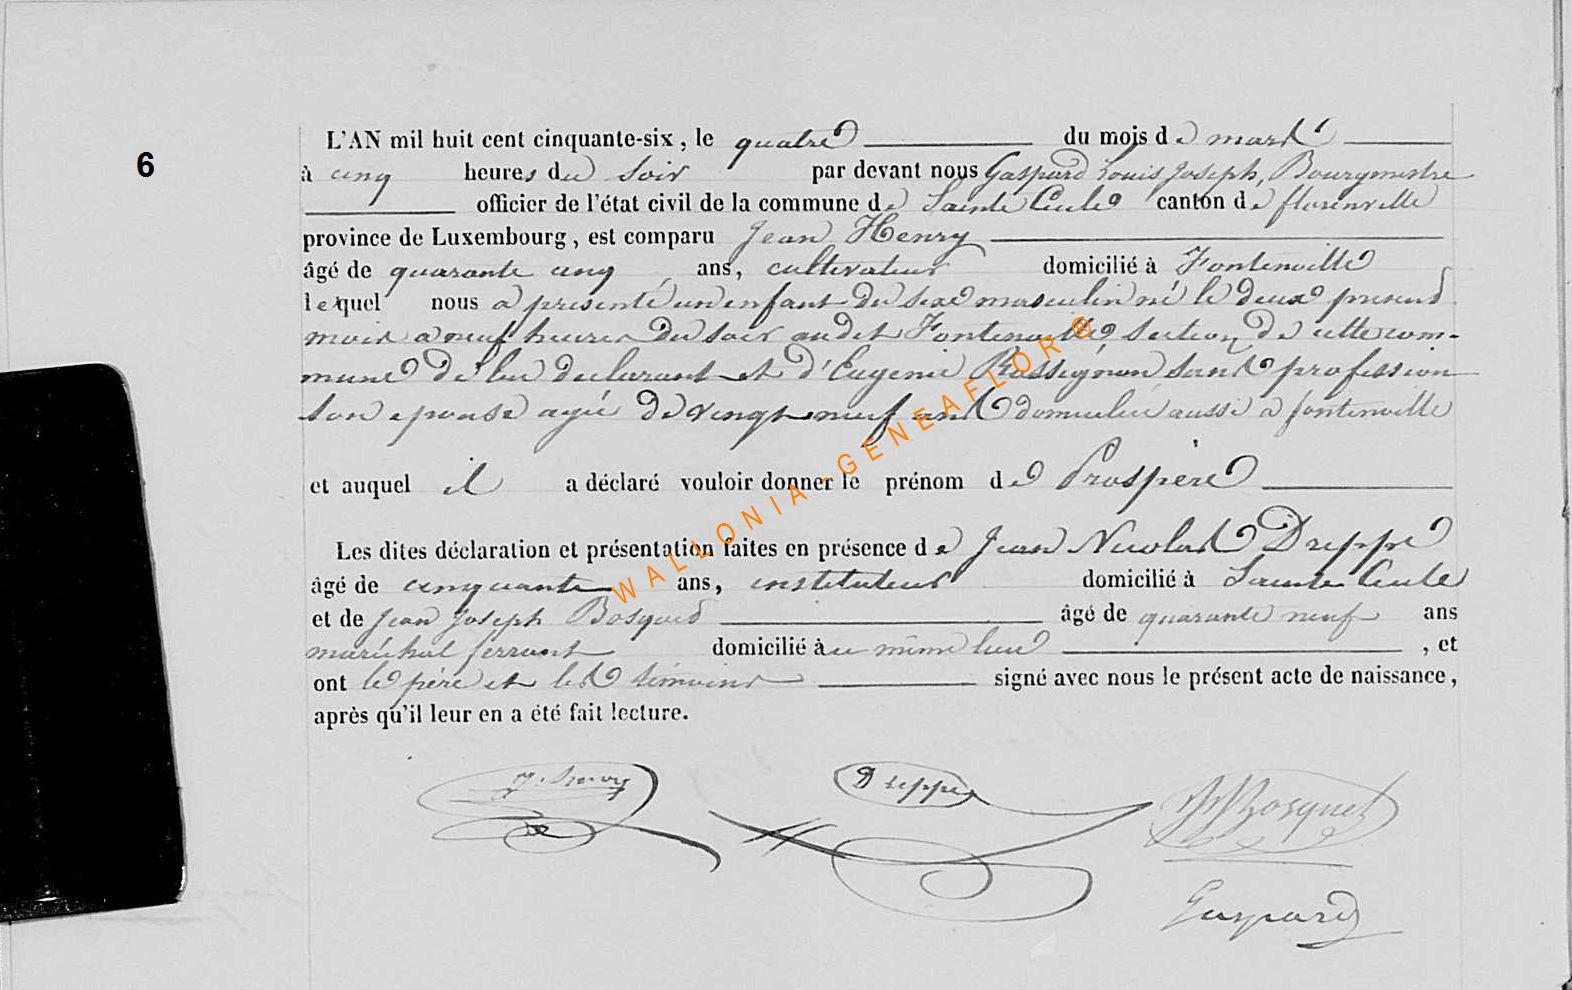 6
L'AN mil huit cent cinquante-six, le quatre du mois de mars
à cinq heures du soir par devant nous Gaspard Louis Joseph, Bourgmestre
officier de l'état civil de la commune de Sainte Cecile canton de florenville
province de Luxembourg, est comparu Jean Henry
âgé de quarante cinq ans, cultivateur domicilié à Fontenoille
lequel nous a presenté un enfant du sexe masculin né le deux present
mois a neuf heures du soir audit Fontenoille, section de cette com-
mune de lui declarant et d'Eugenie Rossignon sans profession
son epouse agée de vingt neuf ans domiciliée aussi a fontenoille
et auquel il a déclaré vouloir donner le prénom de Prospère
Les dites déclaration et présentation faites en présence de Jean Nicolas Dreppe
âgé de cinquante ans, instituteur domicilié à Sainte Cecile
et de Jean Joseph Bosquet âgé de quarante neuf ans
maréchal ferrant domicilié au même lieu, et
ont le père et les témoins signé avec nous le présent acte de naissance,
après qu'il leur en a été fait lecture.
J. henry Dreppe JJBosquet
Gaspard
WALLONIA-GENEAFLOR®